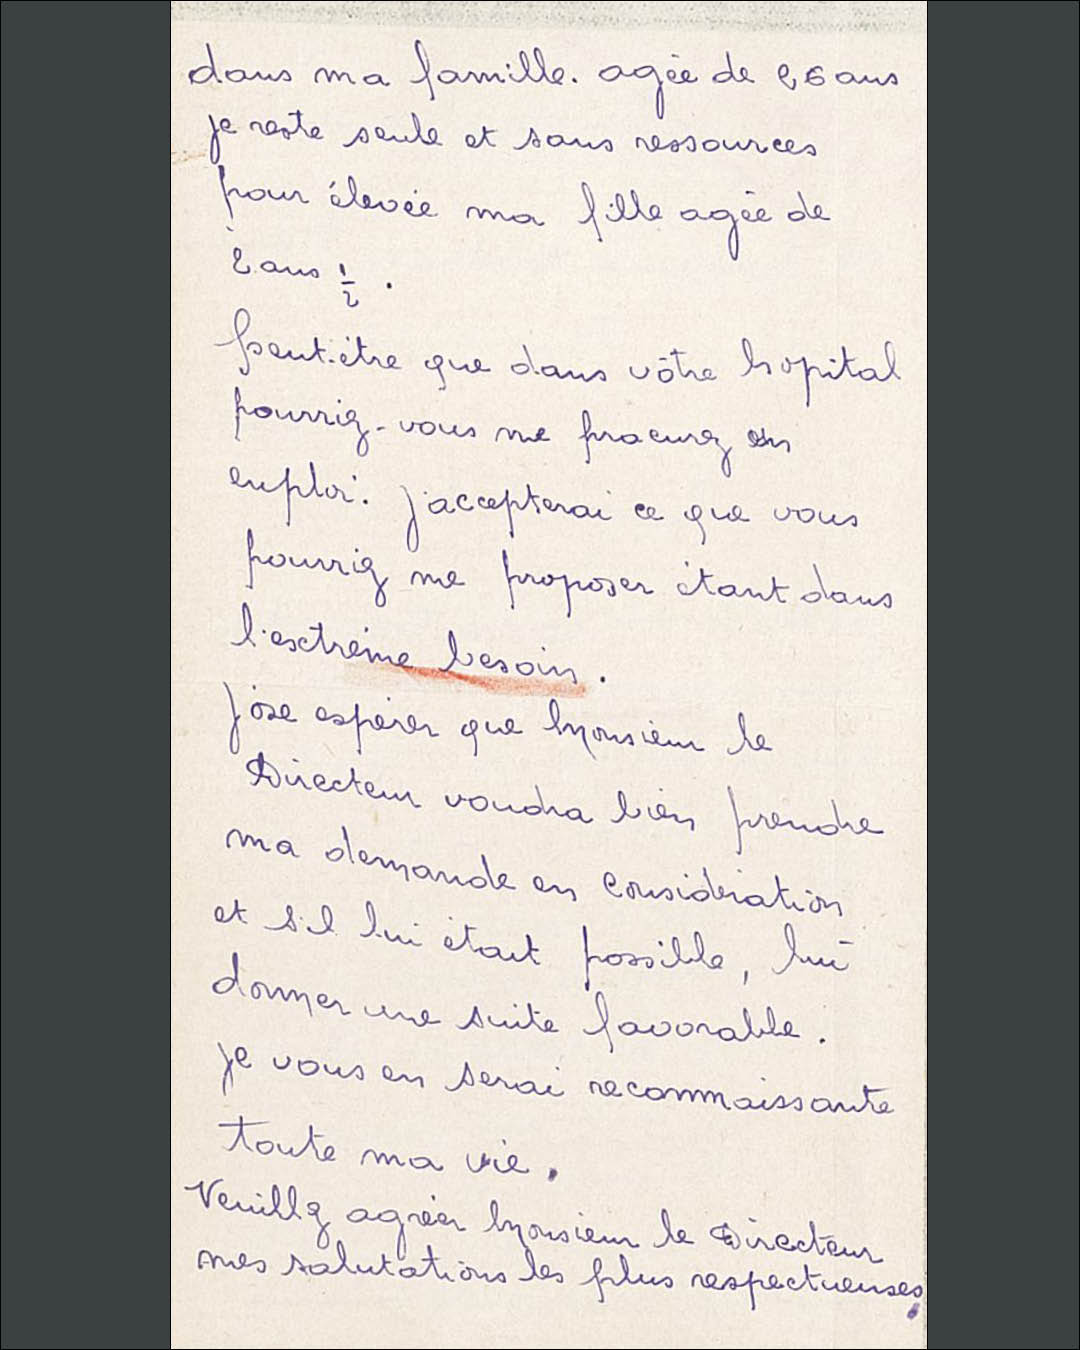 dans ma famille. agée de 26 ans
je reste seule et sans ressources
pour élevée ma fille agée de
2 ans 1/2.
peut-être que dans vôtre hopital
pourriez-vous me procurez un
emploi. j'accepterai ce que vous
pourriez me proposer étant dans
l'extrème besoin.
j'ose espérer que Monsieur le
Directeur voudra bien prendre
ma demande en considération
et s'il lui était possible, lui
donner une suite favorable.
je vous en serai reconnaissante
toute ma vie.
Veuillez agréer Monsieur le Directeur
mes salutations les plus respectueuses,